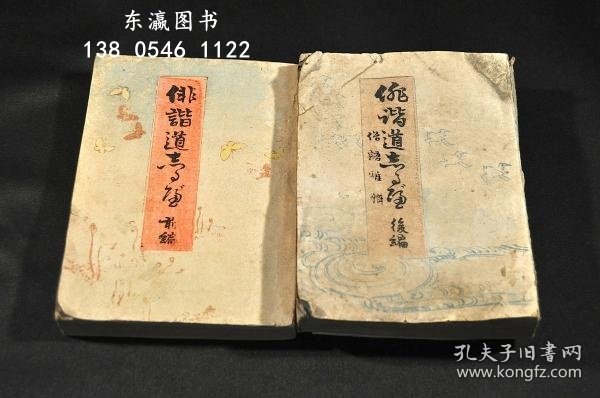 东瀛图书
138 0546 1122
俳諧道志るべ
前編
俳谐道志るべ
俗語雅解
後編
孔夫子旧书网
www.kongfz.com